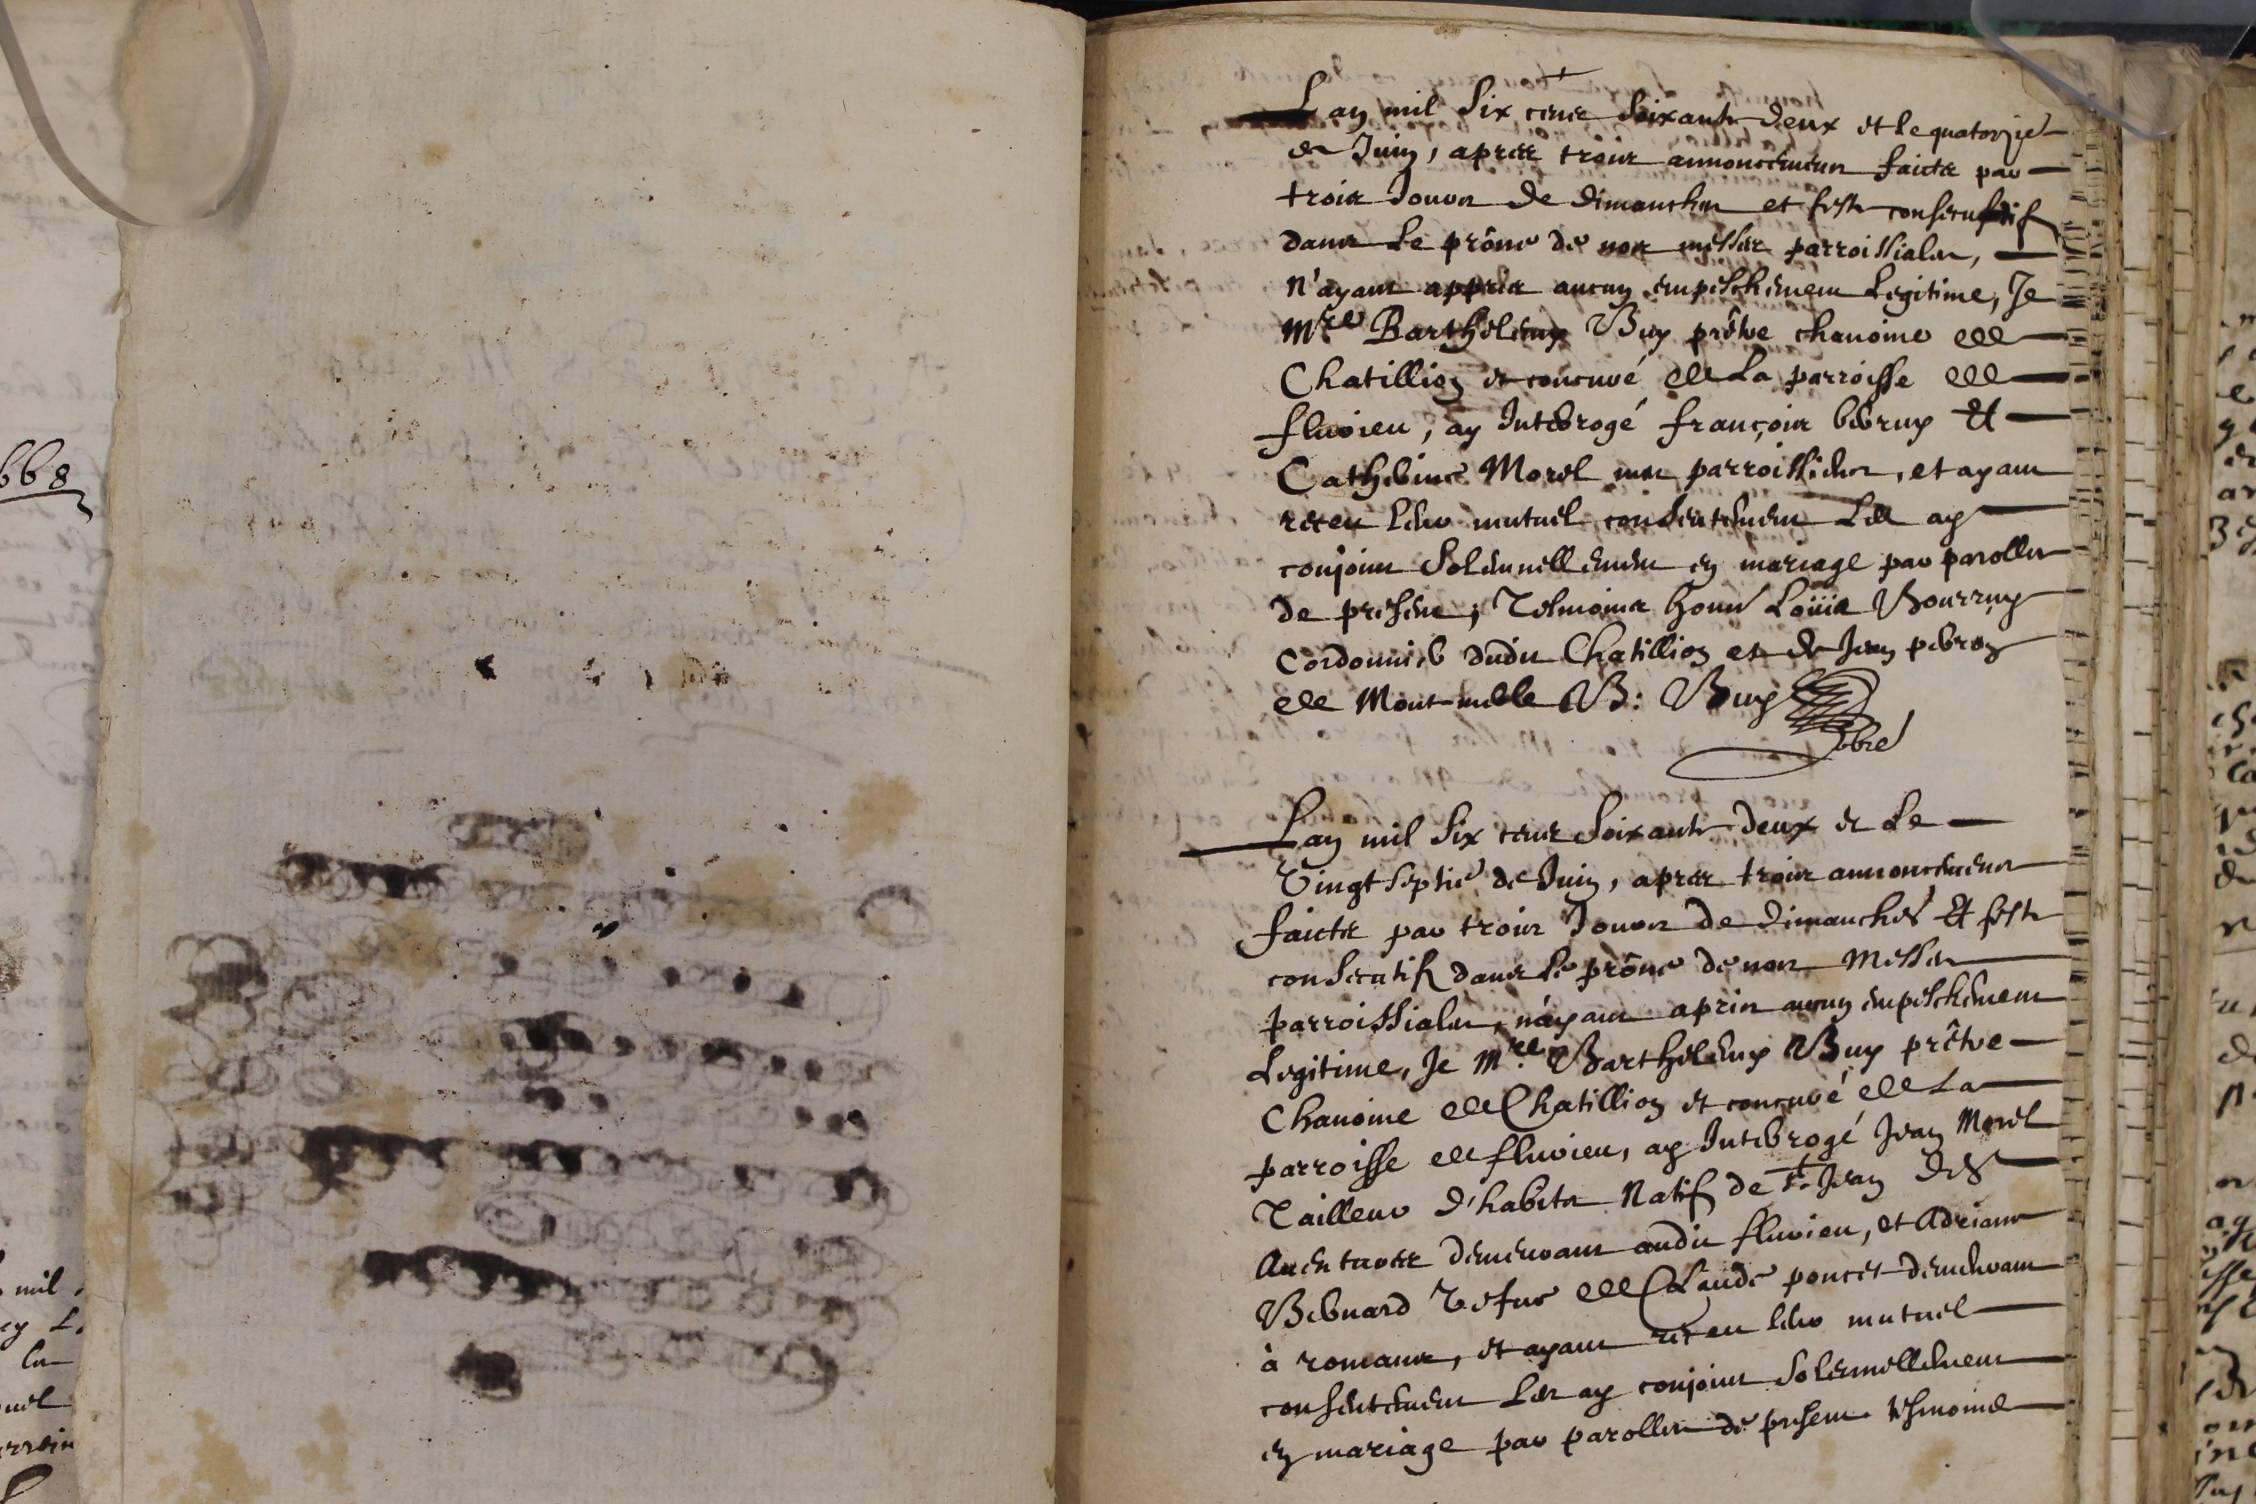 668
Lan mil six cens soixante deux et le quatorzie
de Juin, apres trois annoncemens faicts par
trois Jours de dimanches et feste consecutifs
dans le prône de nos messes parroissiales,
n'ayant appris aucun empeschement Legitime, Je
Mre Barthelemy Buy prêtre chanoine de
Chatillion et concuré de La parroisse de
fluvieu, ay Interrogé françois berruy et
Catherine Morel mes parroissiens, et ayant
receu leur mutuel consentement Les ay
conjoint Solemnellement en mariage par parolles
de present; Tesmoins honn Loüis Bourruy
Cordonnier dudit Chatillion et de Jean perron
de Mont-melle B: Buy
Lan mil six cens soixante deux et Le
Vingt septie de Juin, apres trois annoncemens
faicts par trois Jours de dimanches et feste
consecutifs dans le prône de nos Messes
parroissiales, n'ayant apris aucun empeschement
Legitime, Je Mre Barthelemy Buy prêtre
Chanoine de Chatillion et concuré de La
parroisse de fluvieu, ay Interrogé Jean Morel
Tailleur d'habits Natif de St. Jean des
Auentures demeurant audit fluvieu, et Adrianne
Bernard Vefue de Claude poncet demeurant
à romans, et ayant receu leur mutuel
consentement Les ay conjoint Solemnellement
en mariage par parolles de present tesmoins